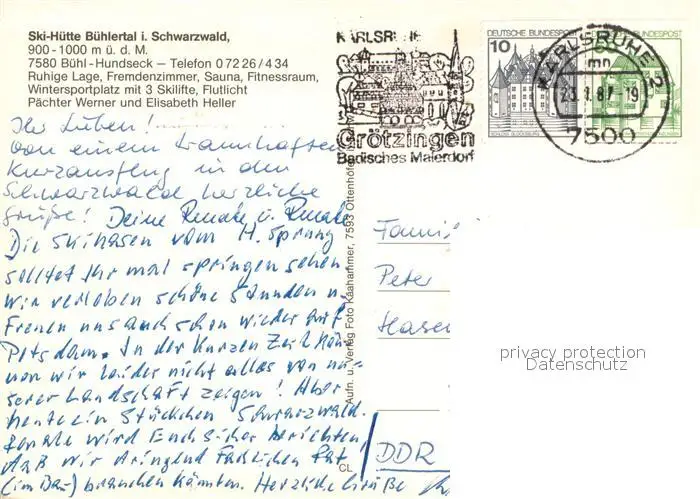 Ski-Hütte Bühlertal i. Schwarzwald,
900-1000 m ü. d. M.
7580 Bühl-Hundseck — Telefon 0 72 26 / 4 34
Ruhige Lage, Fremdenzimmer, Sauna, Fitnessraum,
Wintersportplatz mit 3 Skilifte, Flutlicht
Pächter Werner und Elisabeth Heller
Ihr Lieben!
Von einem traumhaften
Kurzausflug in den
Schwarzwald herzliche
Grüße! Deine Renate u. Renate
Die Skihasen vom H. Sprung
solltet Ihr mal springen sehen
Wir verleben schöne Stunden u.
Freuen uns auch schon wieder auf
Potsdam. In der Kurzen Zeit
wir leider nicht alles von
serer Landschaft zeigen! Aber
heute ein Stückchen Schwarzwald.
Renate wird Euch sicher berichten,
daß wir dringend Fachlichen Rat
(im Bau) brauchen könnten. Herzliche Grüße
Aufn. u. Verlag Foto Kaahammer, 7593 Ottenhöfen
CL
KARLSRUHE
Grötzingen
Badisches Malerdorf
DEUTSCHE BUNDESPOST
10
SCHLOSS GLÜCKSBURG
BUNDESPOST
KARLSRUHE
mn
87 - 19
7500
Peter
DDR
privacy protection
Datenschutz